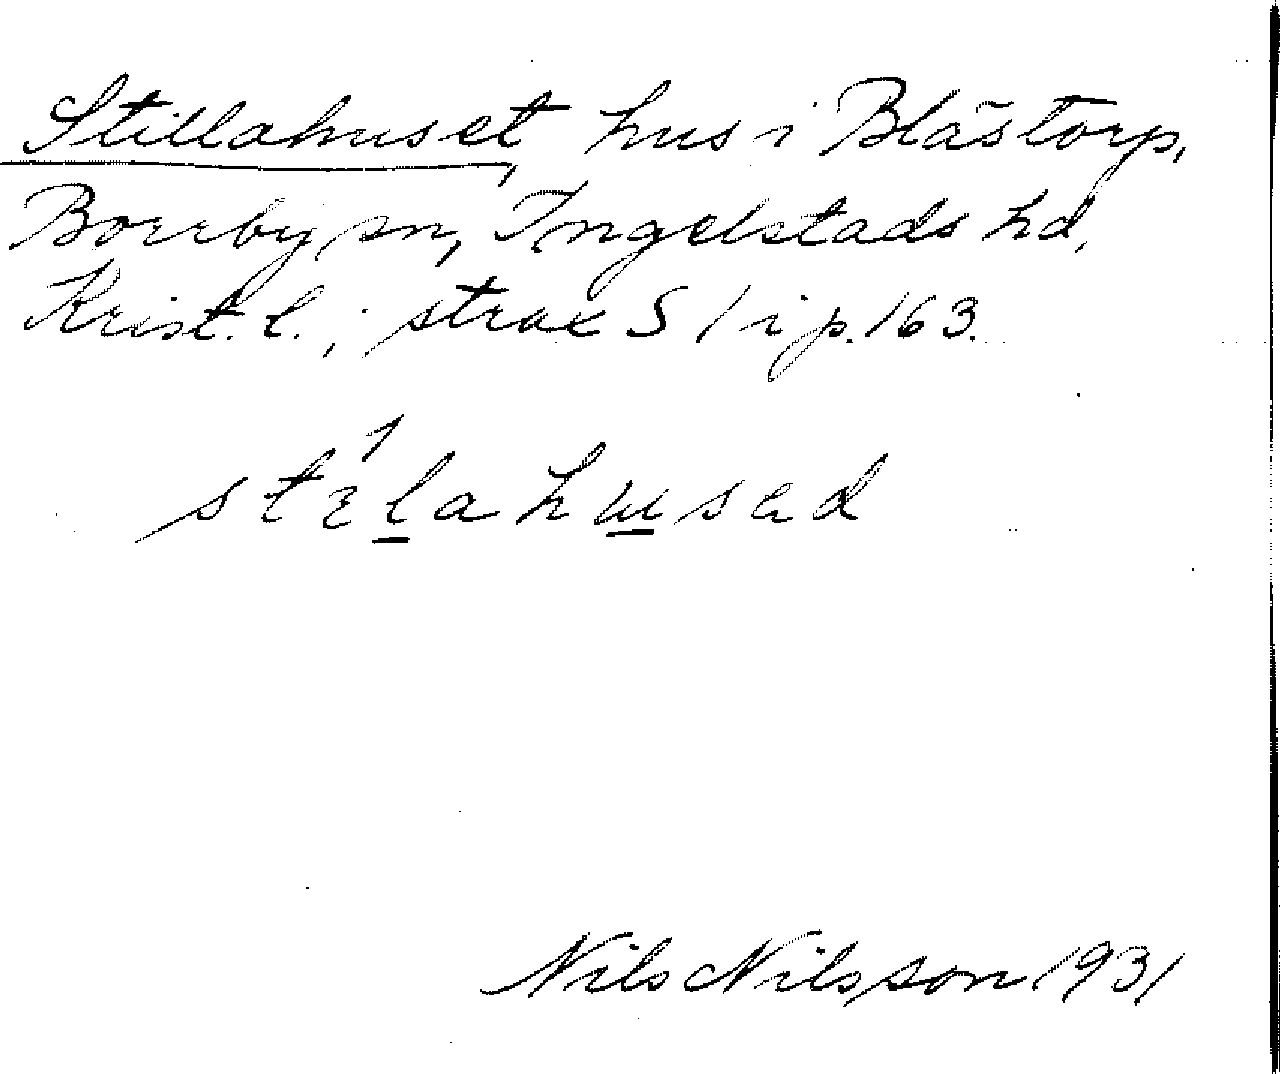 Stillahuset, hus i Blästorp,
Borrby sn, Ingelstads hd,
Krist. l.; strax S / i p. 163.
Nils Nilsson 1931